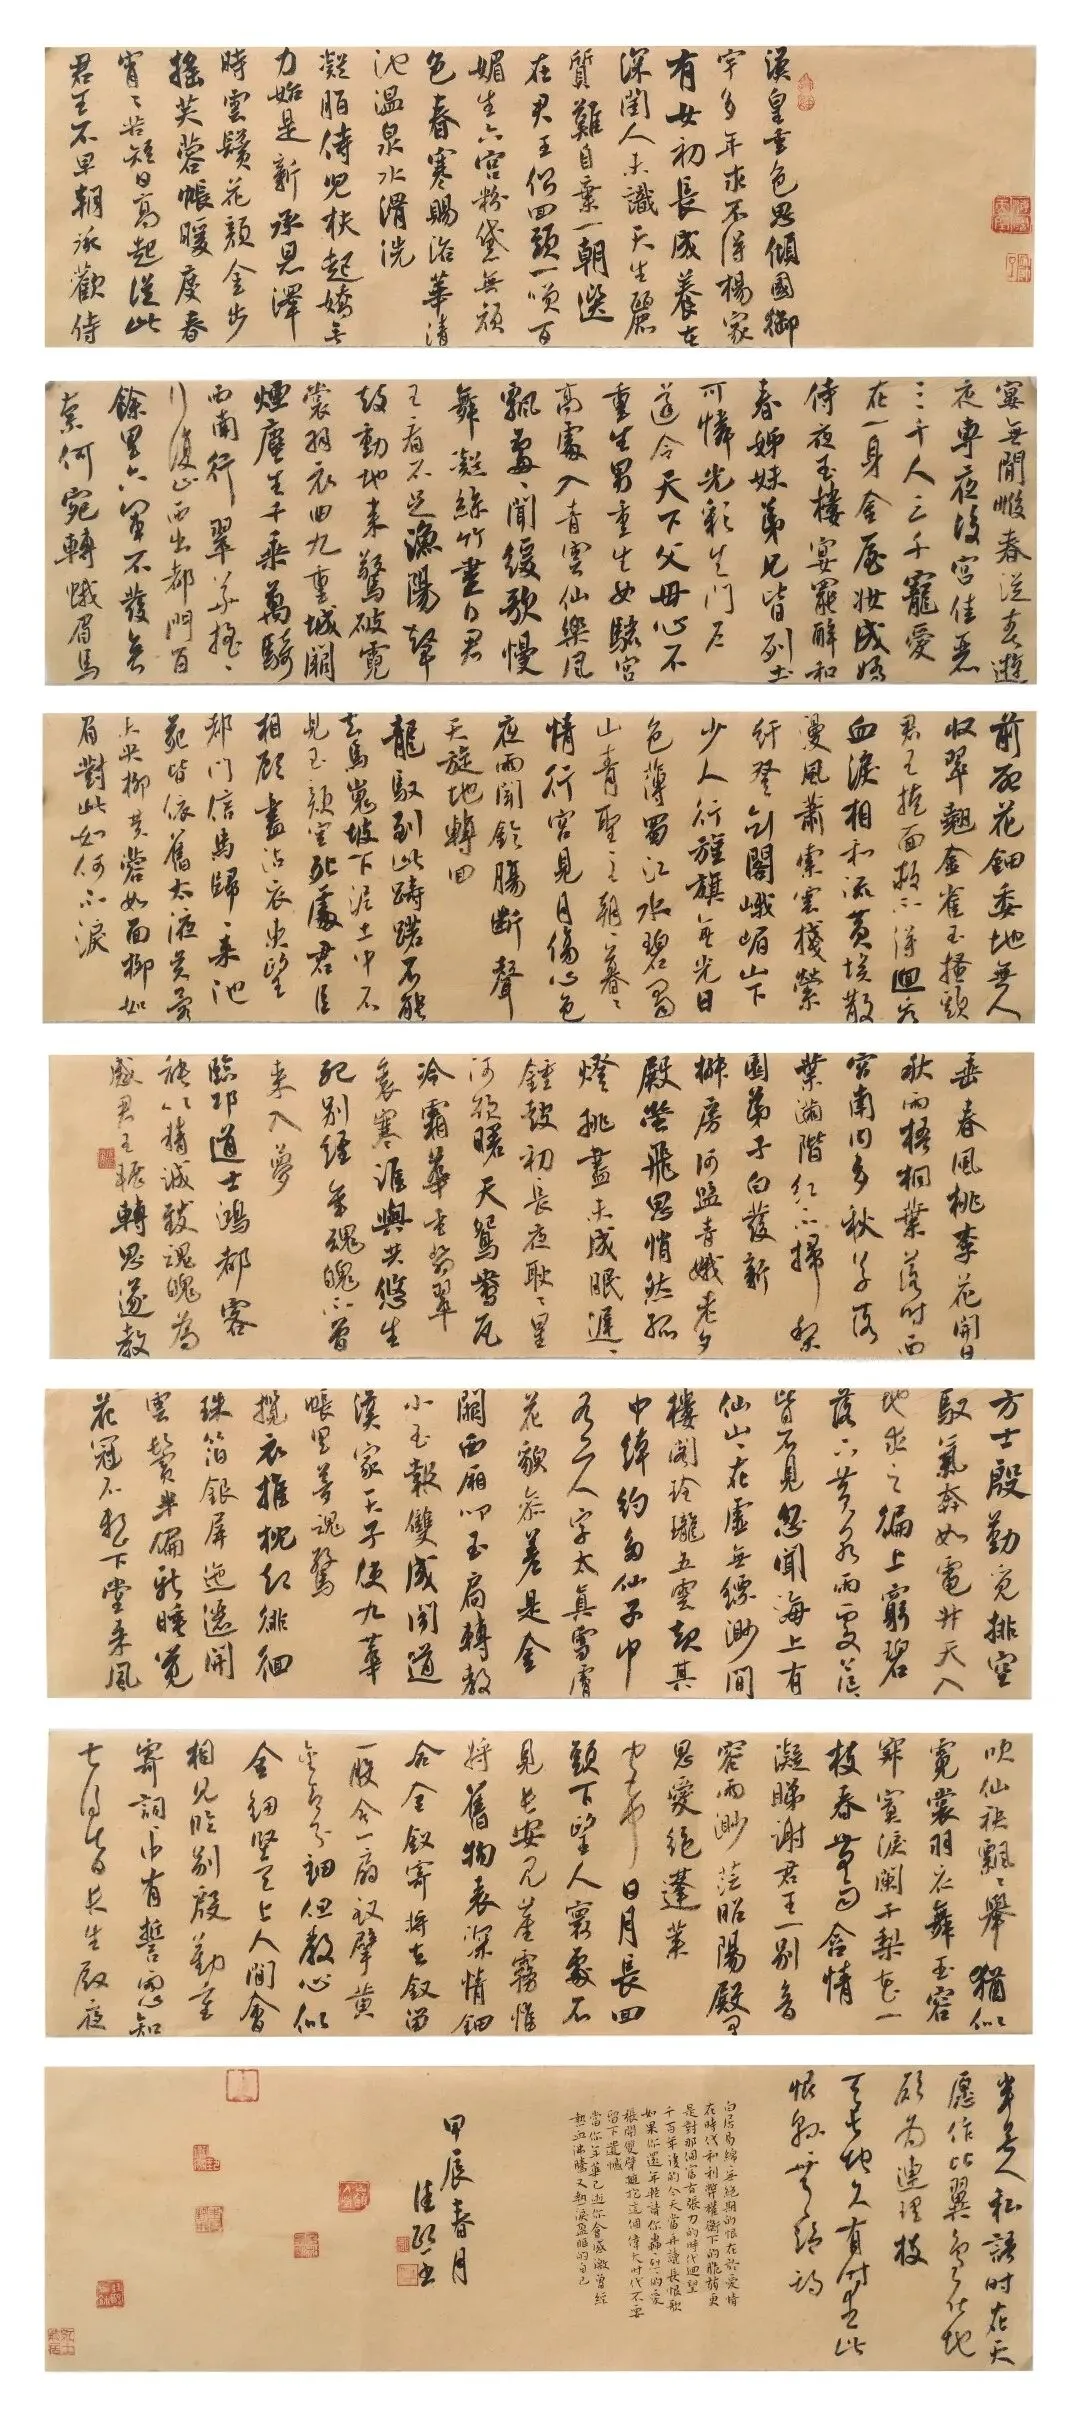 漢皇重色思傾國御
宇多年求不得楊家
有女初長成養在
深閨人未識天生麗
質難自棄一朝選
在君王側回頭一笑百
媚生六宮粉黛無顏
色春寒賜浴華清
池溫泉水滑洗
凝脂侍兒扶起嬌無
力始是新承恩澤
時雲鬢花顏金步
搖芙蓉帳暖度春
宵〻苦短日高起從此
君王不早朝承歡侍
宴無閒暇春從春遊
夜專夜後宮佳麗
三千人三千寵愛
在一身金屋妝成嬌
侍夜玉樓宴罷醉和
春姊妹弟兄皆列土
可憐光彩生門戶
遂令天下父母心不
重生男重生女驪宮
高處入青雲仙樂風
飄處〻聞緩歌慢
舞凝絲竹盡日君
王看不足漁陽鼙
鼓動地來驚破霓
裳羽衣曲九重城闕
煙塵生千乘萬騎
西南行翠華搖〻
行復止西出都門百
餘里六軍不發無
奈何宛轉蛾眉馬
前死花鈿委地無人
收翠翹金雀玉搔頭
君王掩面救不得回看
血淚相和流黃埃散
漫風蕭索雲棧縈
紆登劍閣峨嵋山下
少人行旌旗無光日
色薄蜀江水碧蜀
山青聖主朝〻暮〻
情行宮見月傷心色
夜雨聞鈴腸斷聲
天旋地轉回
龍馭到此躊躇不能
去馬嵬坡下泥土中不
見玉顏空死處君臣
相顧盡沾衣東望
都門信馬歸〻來池
苑皆依舊太液芙蓉
未央柳芙蓉如面柳如
眉對此如何不淚
垂春風桃李花開日
秋雨梧桐葉落時西
宮南內多秋草落
葉滿階紅不掃梨
園弟子白髮新
椒房阿監青娥老夕
殿螢飛思悄然孤
燈挑盡未成眠遲〻
鐘鼓初長夜耿〻星
河欲曙天鴛鴦瓦
冷霜華重翡翠
衾寒誰與共悠〻生
死別經年魂魄不曾
來入夢
臨邛道士鴻都客
能以精誠致魂魄為
感君王輾轉思遂教
方士殷勤覓排空
馭氣奔如電升天入
地求之徧上窮碧
落下黃泉兩處茫〻
皆不見忽聞海上有
仙山〻在虛無縹渺間
樓閣玲瓏五雲起其
中綽約多仙子中
有一人字太真雪膚
花貌參差是金
闕西廂叩玉扃轉教
小玉報雙成聞道
漢家天子使九華
帳里夢魂驚
攬衣推枕起徘徊
珠箔銀屏迤邐開
雲鬢半偏新睡覺
花冠不整下堂來風
吹仙袂飄〻舉猶似
霓裳羽衣舞玉容
寂寞淚闌干梨花一
枝春帶雨含情
凝睇謝君王一別音
容兩渺茫昭陽殿里
恩愛絕蓬萊
宮中日月長回
頭下望人寰處不
見長安見塵霧惟
將舊物表深情鈿
合金釵寄將去釵留
一股合一扇釵擘黃
金合分鈿但教心似
金鈿堅天上人間會
相見臨別殷勤重
寄詞〻中有誓兩心知
七月七日長生殿夜
半無人私語時在天
愿作比翼鳥在地
願為連理枝
天長地久有時盡此
恨綿〻無絕期
白居易綿〻無絕期的恨在於愛情
在時代和利弊權衡下的脆弱更
是對那個富有張力的時代迴望
千百年後的今天當再讀長恨歌
如果你還年輕請你轟烈的愛
張開雙臂擁抱這個偉大時代不要
留下遺憾
當你年華已逝你會感激曾經
熱血沸騰又熱淚盈眶的自己
甲辰春月